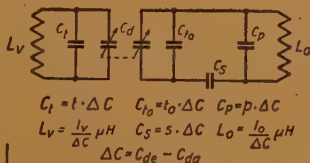 L_v C_t C_d C_to C_p L_o
C_s
C_t = t·ΔC C_to = t_o·ΔC C_p = p·ΔC
L_v = l_v/ΔC μH C_s = s·ΔC L_o = l_o/ΔC μH
ΔC = C_de − C_da